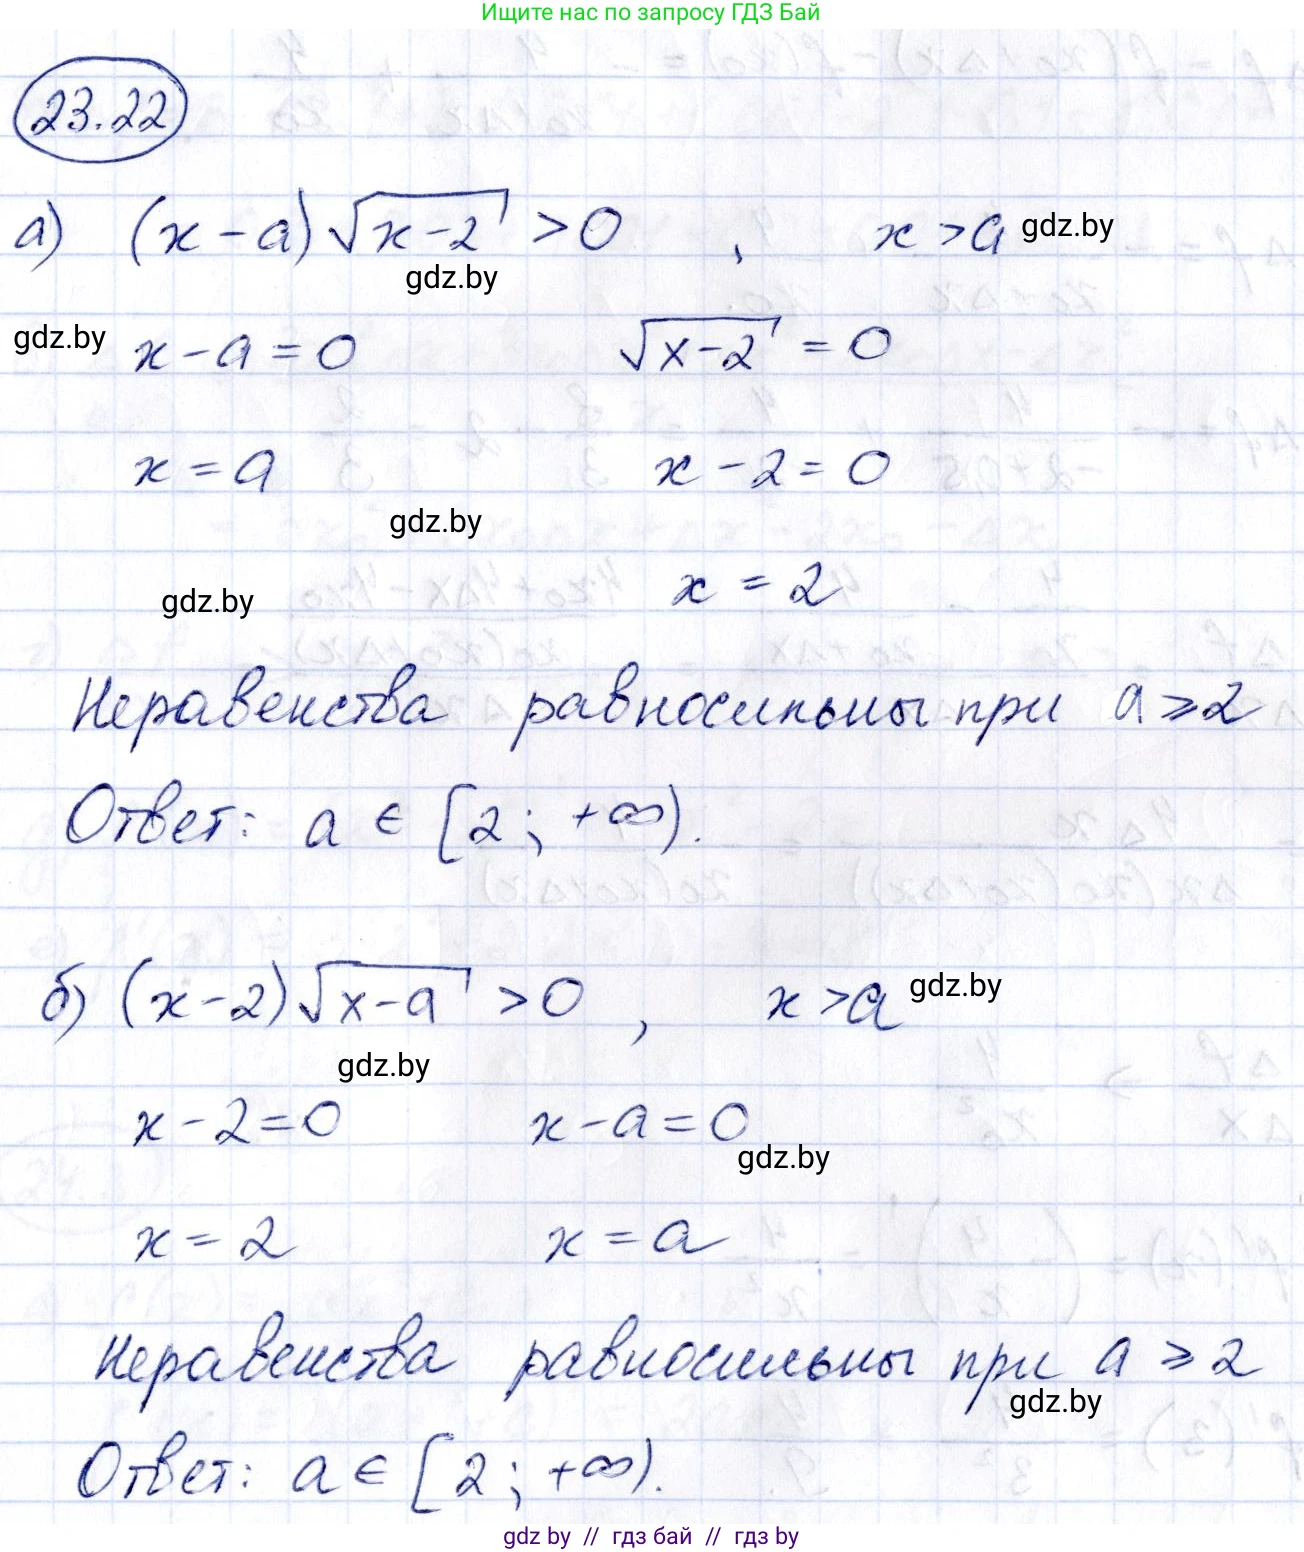 Ищите нас по запросу ГДЗ Бай
23.22
а) (x-a)√(x-2) >0 , x>a gdz.by
gdz.by
gdz.by x-a=0 √(x-2) = 0
x=a x-2=0
gdz.by
gdz.by x=2
Неравенства равносильны при a⩾2
Ответ: a ∈ [2; +∞).
б) (x-2)√(x-a) >0 , x>a gdz.by
gdz.by
x-2=0 x-a=0
gdz.by
x=2 x=a
Неравенства равносильны при a ⩾ 2
gdz.by
Ответ: a ∈ [2; +∞).
gdz by // гдз бай // gdz by